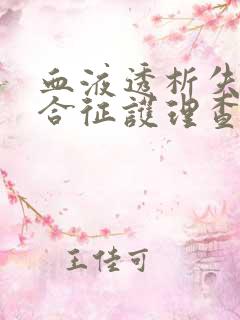 血液透析失
合征護理查
王佳可